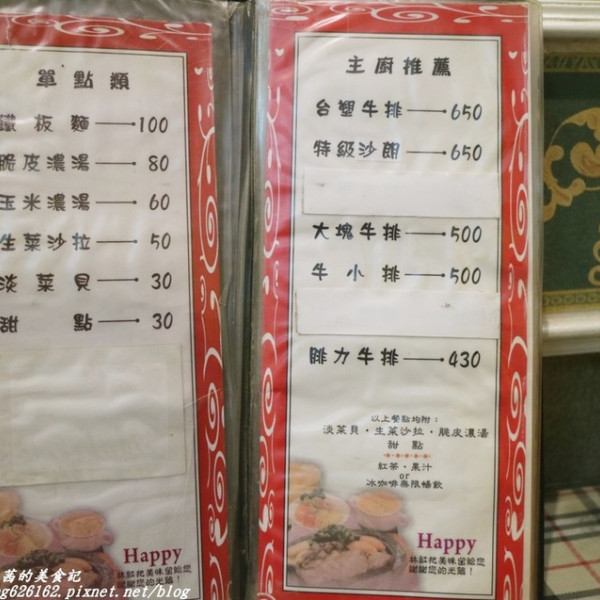 單點類
鐵板麵 100
脆皮濃湯 80
玉米濃湯 60
生菜沙拉 50
淡菜貝 30
甜點 30
Happy
謝謝您的光臨！
主廚推薦
台塑牛排 650
特級沙朗 650
大塊牛排 500
牛小排 500
腓力牛排 430
以上餐點均附：
淡菜貝・生菜沙拉・脆皮濃湯
甜 點
紅茶・果汁
or
冰咖啡無限暢飲
Happy
謝謝您的光臨！
茜的美食記
g626162.pixnet.net/blog